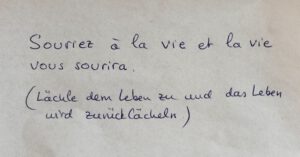 Souriez à la vie et la vie
vous sourira.
(Lächle dem Leben zu und das Leben
wird zurücklächeln)